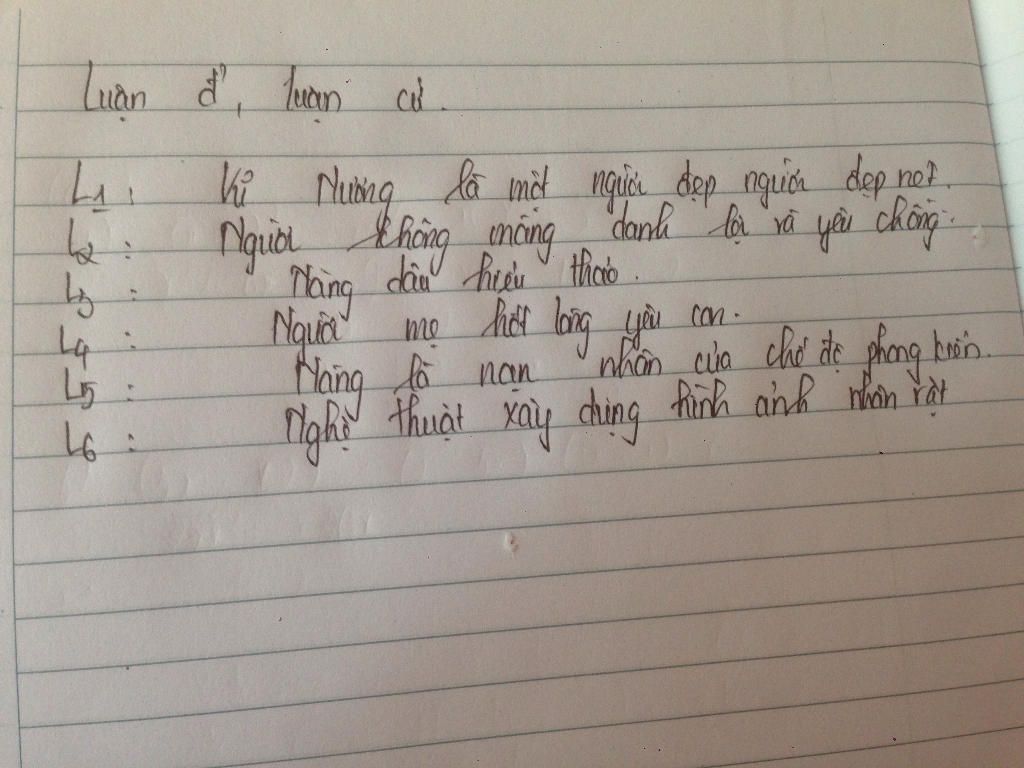 Luận đ', luận cứ.
L1: Vũ Nương là một người đẹp người đẹp nết.
L2: Người không màng danh lợi và yêu chồng.
L3: Nàng dâu hiếu thảo.
L4: Người mẹ hết lòng yêu con.
L5: Nàng là nạn nhân của chế độ phong kiến.
L6: Nghệ thuật xây dựng hình ảnh nhân vật